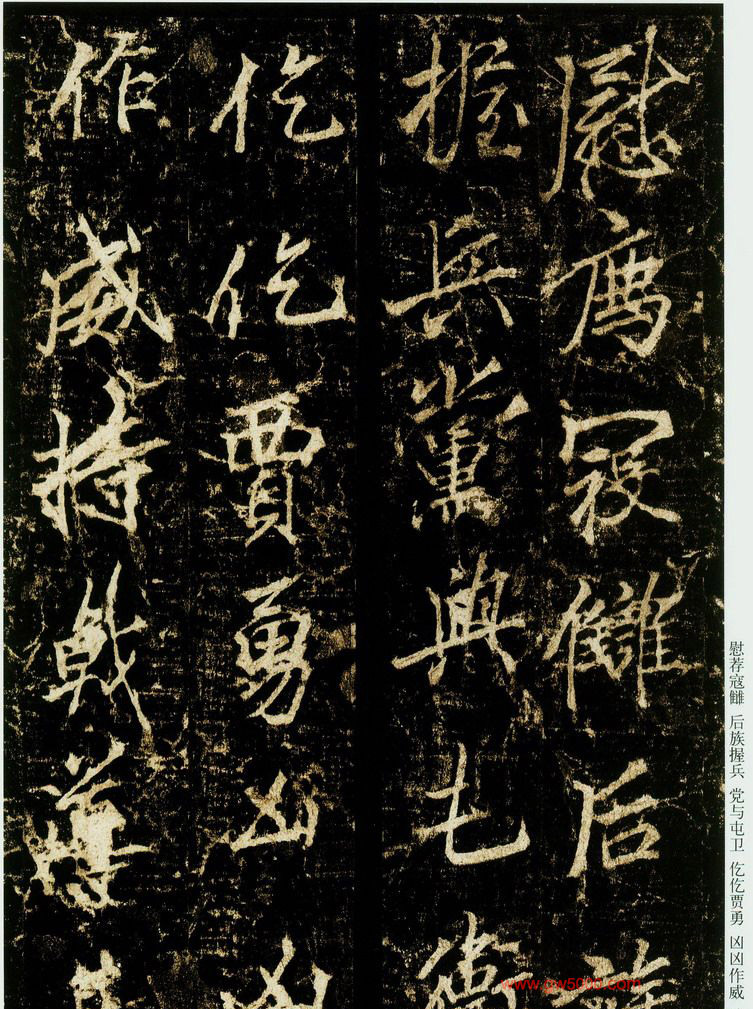 慰薦寇讎后族
握兵黨與屯衛
仡仡賈勇凶凶
作威持戟
慰荐寇雠 后族握兵 党与屯卫 仡仡贾勇 凶凶作威